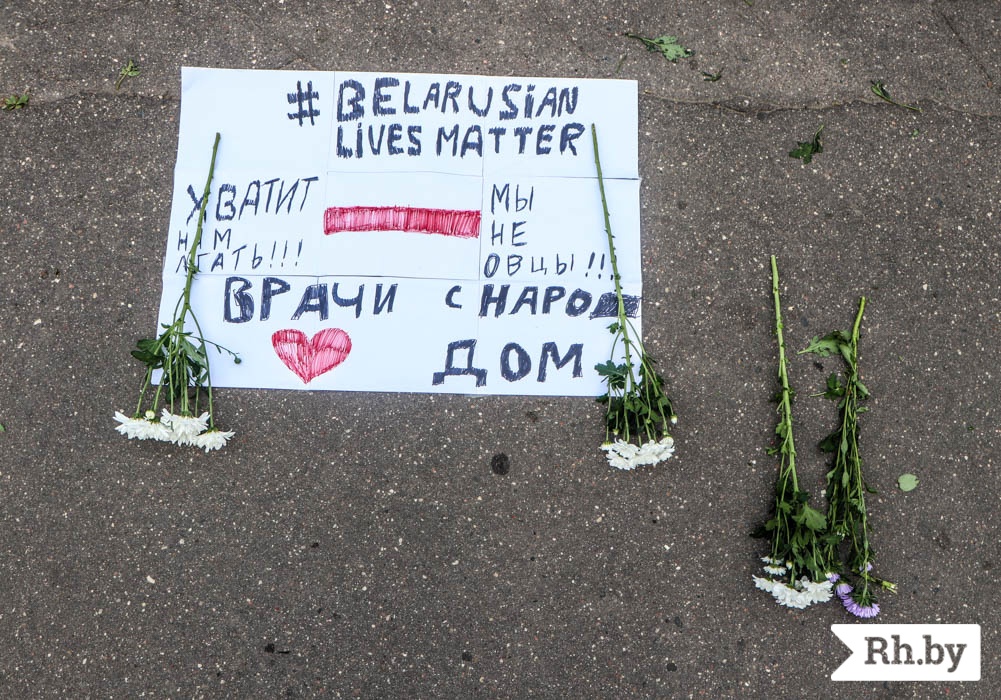 #BELARUSIAN
LIVES MATTER
ХВАТИТ
НАМ
ЛГАТЬ!!!
МЫ
НЕ
ОВЦЫ!!!
ВРАЧИ С НАРОДОМ
Rh.by